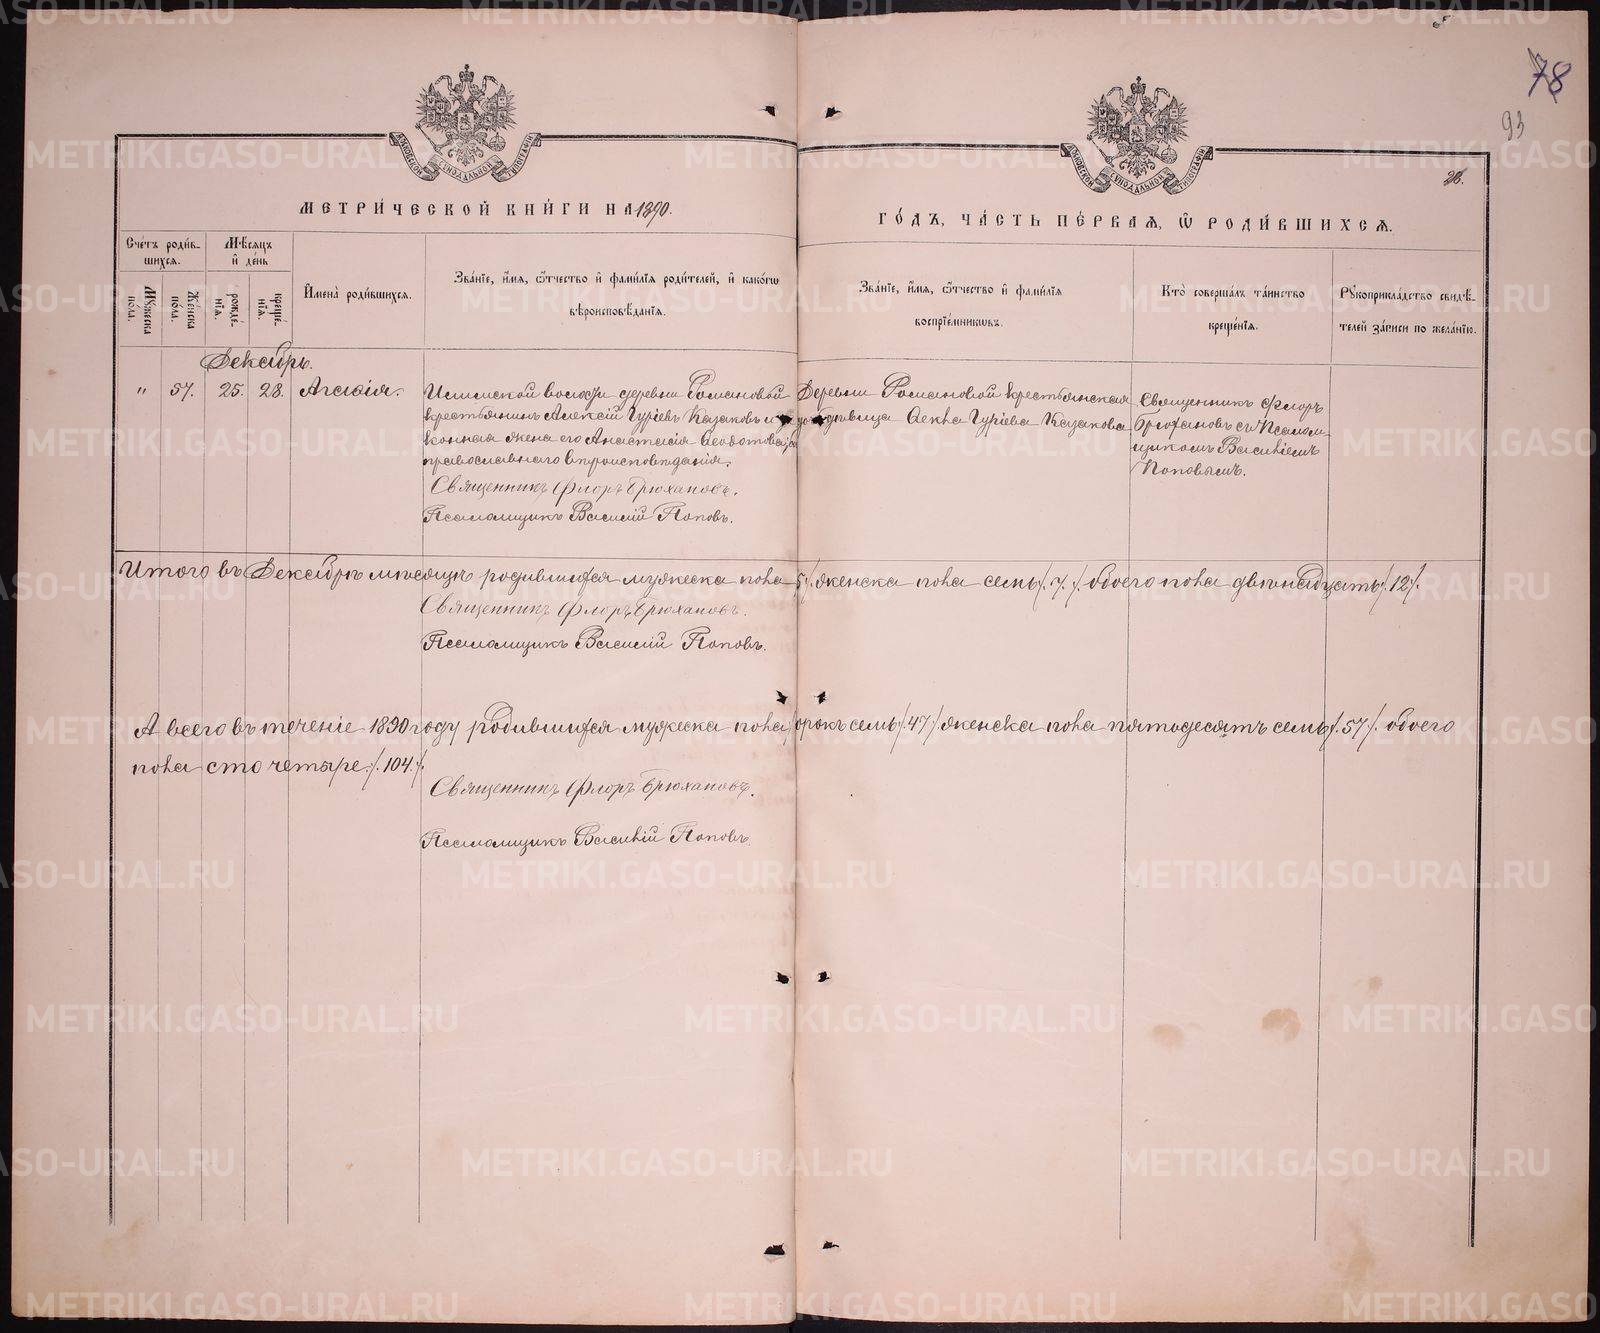 78
93
26.
МЕТРИ́ЧЕСКОЙ КНИ́ГИ НА 1890.
ГО́ДЪ, ЧА́СТЬ ПЕ́РВАЯ, Ѡ РОДИ́ВШИХСЯ.
Сче́тъ роди́в-
шихся.
Мѣ́сяцъ
и҆ де́нь
Му́жеска
по́ла.
Же́нска
по́ла.
рожде́-
нїя.
креще́-
нїя.
И҆мена̀ роди́вшихся.
Зва́нїе, и҆́мя, ѻ҆́тчество и҆ фами́лїя роди́телей, и҆ како́гѡ
вѣроисповѣ́данїя.
Зва́нїе, и҆́мя, ѻ҆́тчество и҆ фами́лїя
воспрїе́мниковъ.
Кто̀ соверша́лъ та́инство
креще́нїя.
Рꙋкоприкла́дство свидѣ́-
телей за́писи по жела́нїю.
Декабрь.
" 57. 25. 28. Агафія.
Илимской волости деревни Романовой
крестьянинъ Алексій Гуріевъ Казаковъ и за
конная жена его Анастасія Ѳеодотова, оба
православнаго вѣроисповѣданія.
Священникъ Флоръ Брюхановъ.
Псаломщикъ Василій Поповъ.
Деревни Романовой крестьянская
дѣвица Ѳекла Гуріева Казакова
Священникъ Флоръ
Брюхановъ съ Псалом
щикомъ Василіемъ
Поповымъ.
Итого въ Декабрѣ мѣсяцѣ родившихся мужеска пола 5 /. женска пола семь /. 7. /. обоего пола двѣнадцать /. 12 /.
Священникъ Флоръ Брюхановъ.
Псаломщикъ Василій Поповъ.
А всего въ теченіе 1890 году родившихся мужеска пола сорокъ семь /. 47 /. женска пола пятьдесятъ семь /. 57 /. обоего
пола сто четыре. /. 104. /.
Священникъ Флоръ Брюхановъ.
Псаломщикъ Василій Поповъ.